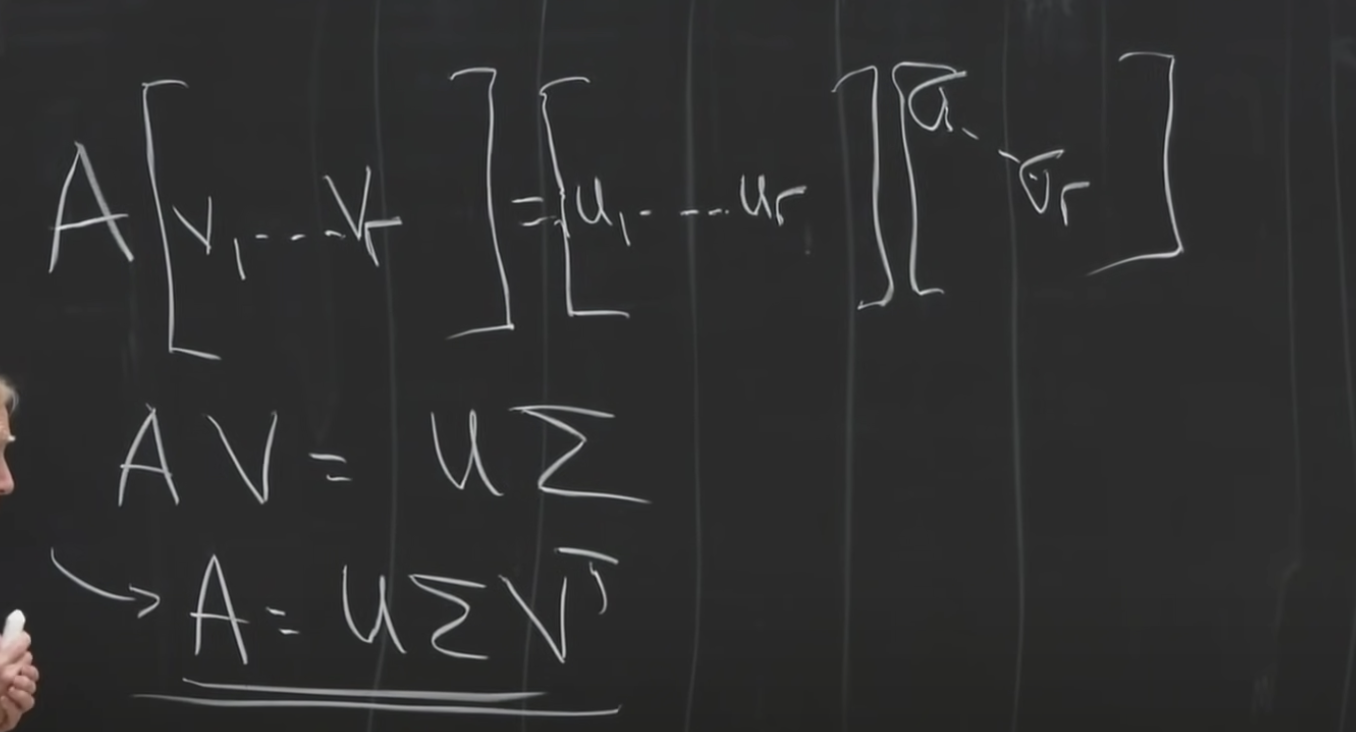 A [v₁ --- vᵣ] = [u₁ --- uᵣ] [σ₁ ⋱ σᵣ]
A V = U Σ
→ A = U Σ Vᵀ